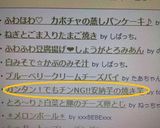 ふわほわ♡ カボチャの蒸しパンケーキ♪
ねぎとごま入りたまご焼き by
ふわふわ豆腐揚げ♥しょうがとろみあん by
白みそで☆かぶのみそ汁 by
ブルーベリークリームチーズパイ by たあちゃん
カンタン!でもチンNG!!安納芋の焼き芋
とろ〜り♪白菜と豚のチーズとろとろ
*メロンボール* by xxxBEBExxx